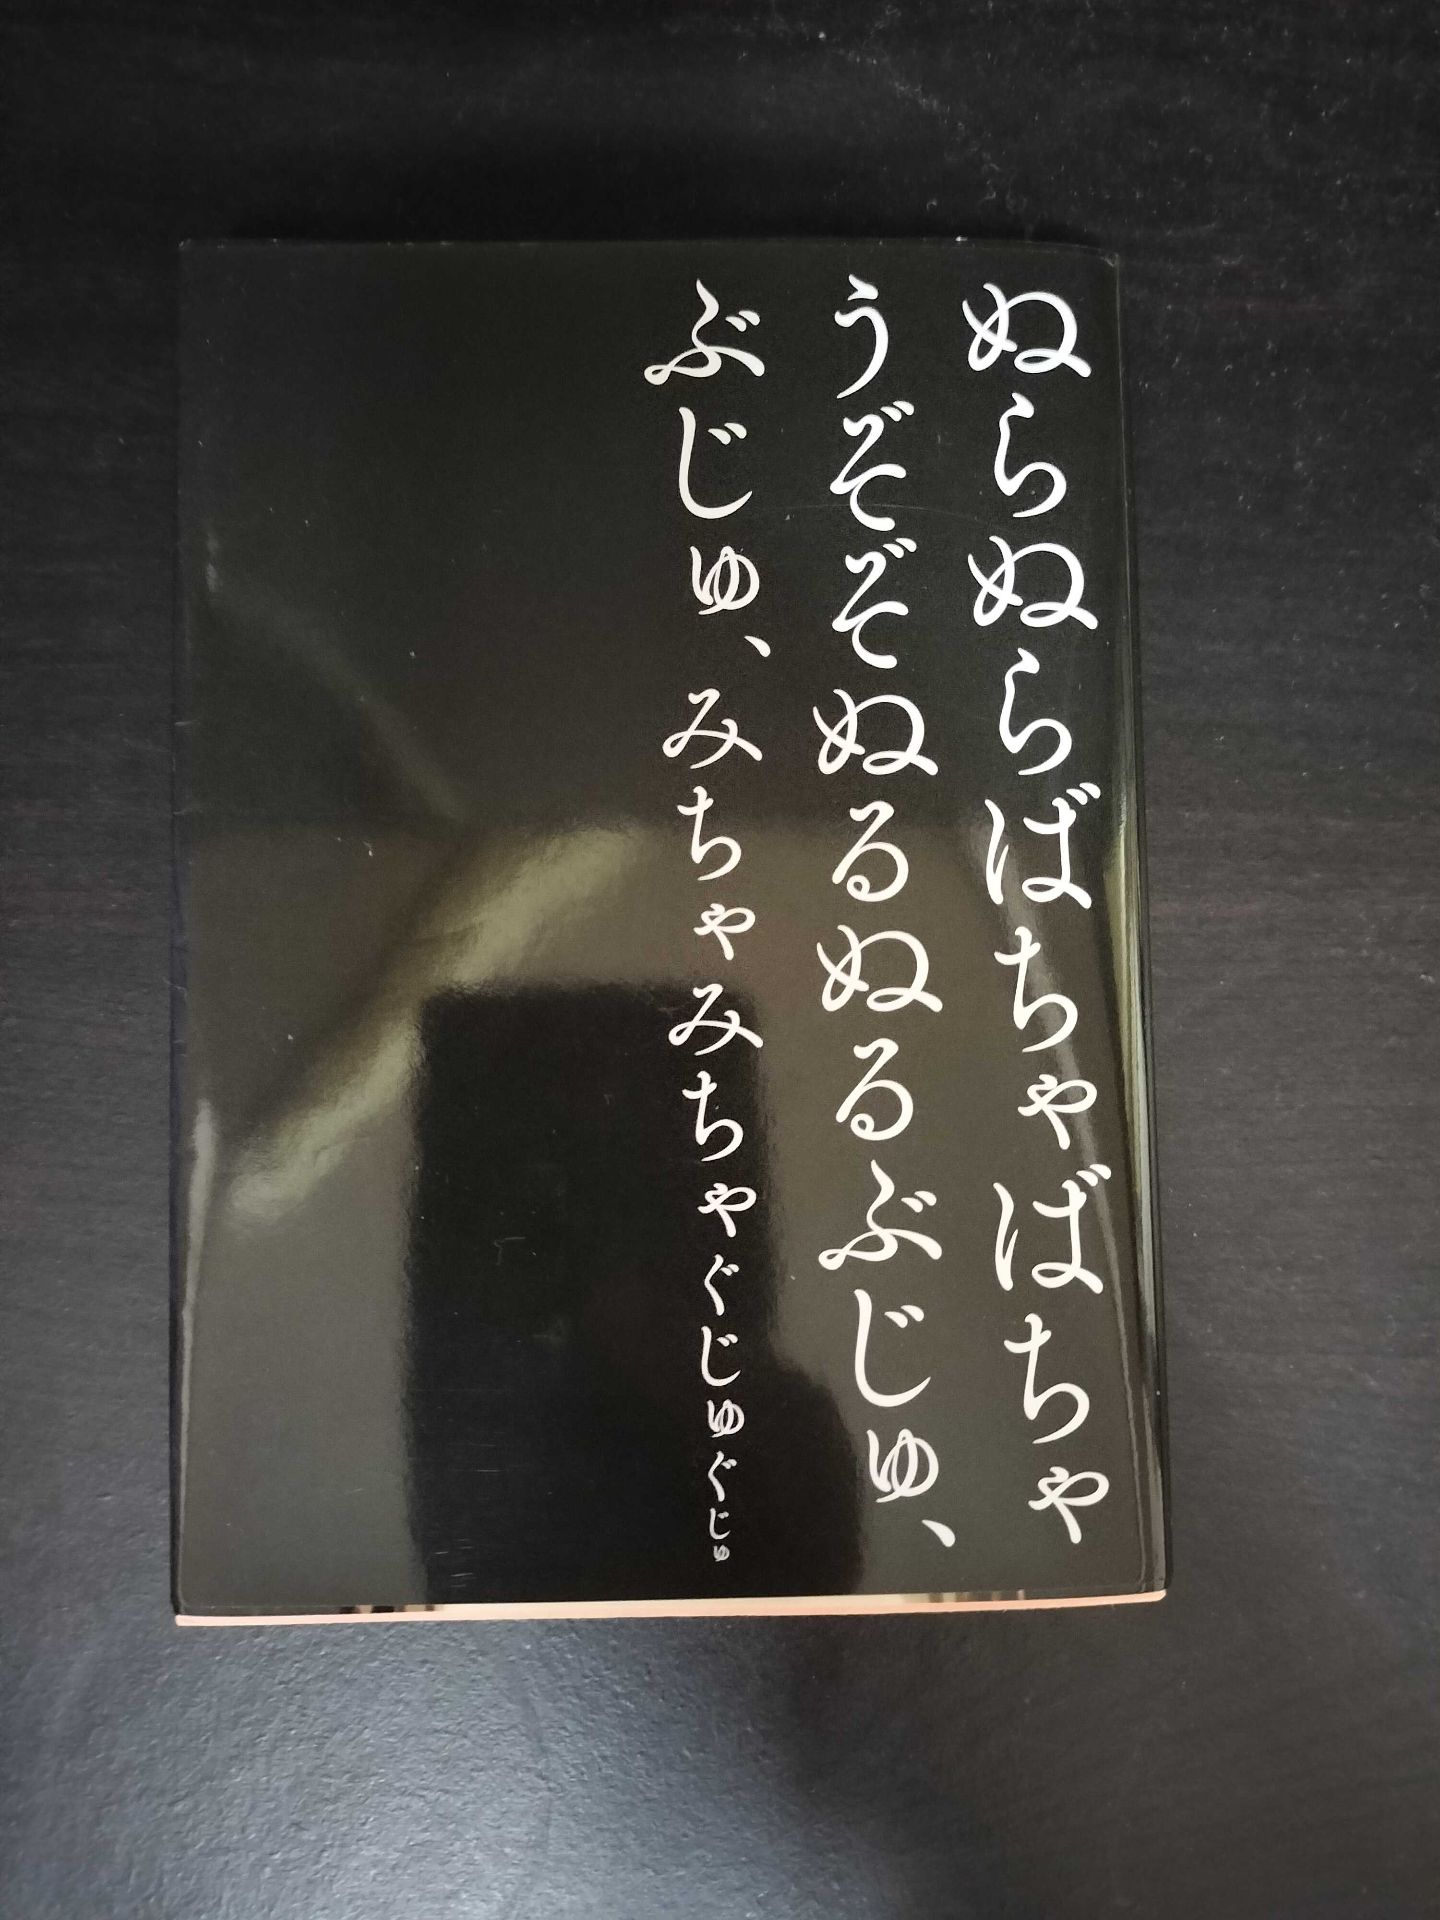 ぬらぬらばちゃばちゃ
うぞぞぬるぬるぶじゅ、
ぶじゅ、みちゃみちゃぐじゅぐじゅ